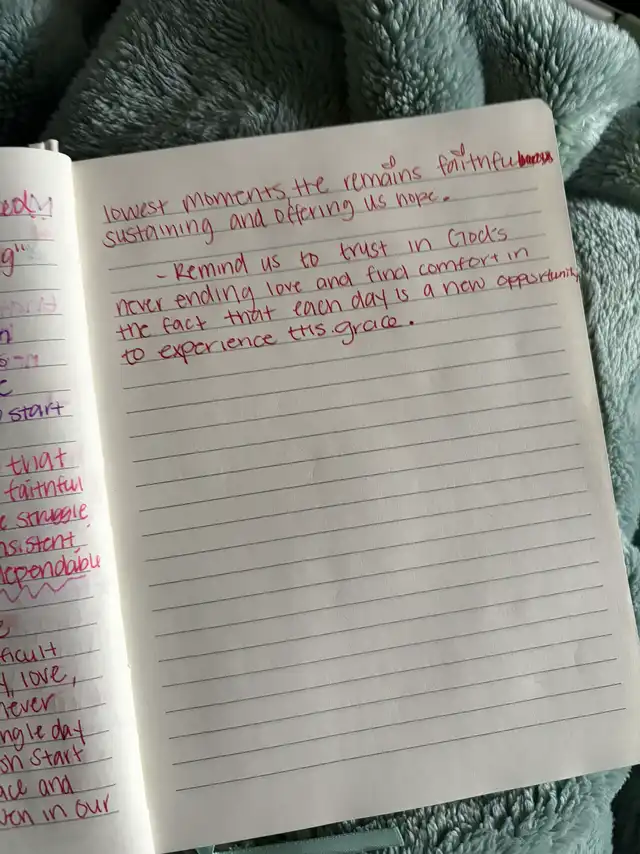 edly
g"
n
c
start
that
faithful
struggle,
nsistent,
dependable
ficult
, love,
never
ngle day
sh start
ace and
ven in our
lowest moments, He remains faithful
sustaining and offering us hope.
- Remind us to trust in God's
never ending love and find comfort in
the fact that each day is a new opportunity
to experience His grace.